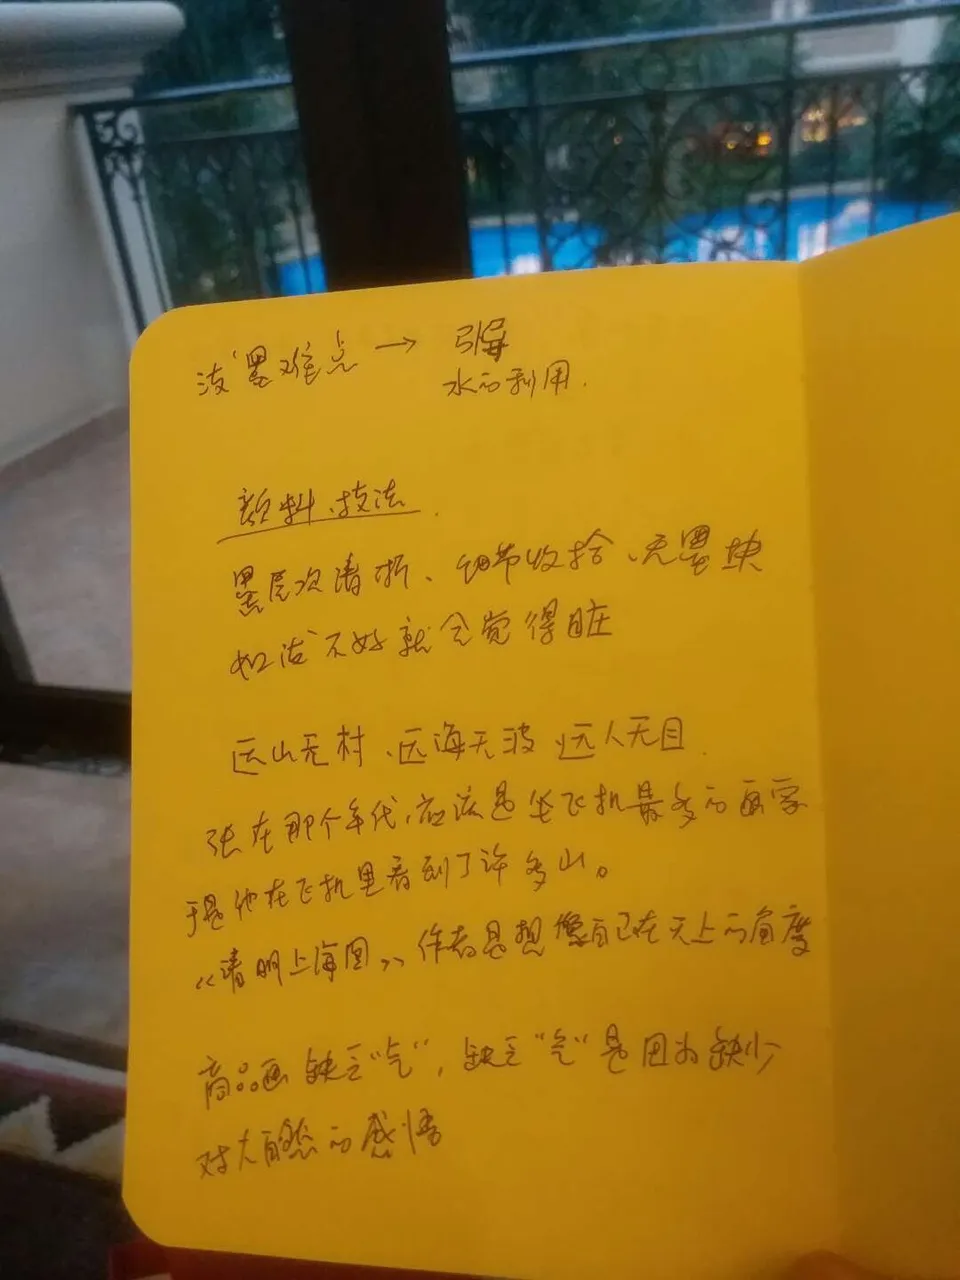 泼墨难点 → 引导
水的利用.
颜料、技法.
墨层次清晰、细节收拾、无墨块
如法不好就会觉得脏
远山无村、远海无波 远人无目.
张在那个年代,应该是坐飞机最多的画家
于是他在飞机里看到了许多山。
《清明上海图》作者是想像自己在天上的角度
商品画缺乏“气”,缺乏“气”是因为缺少
对大自然的感悟